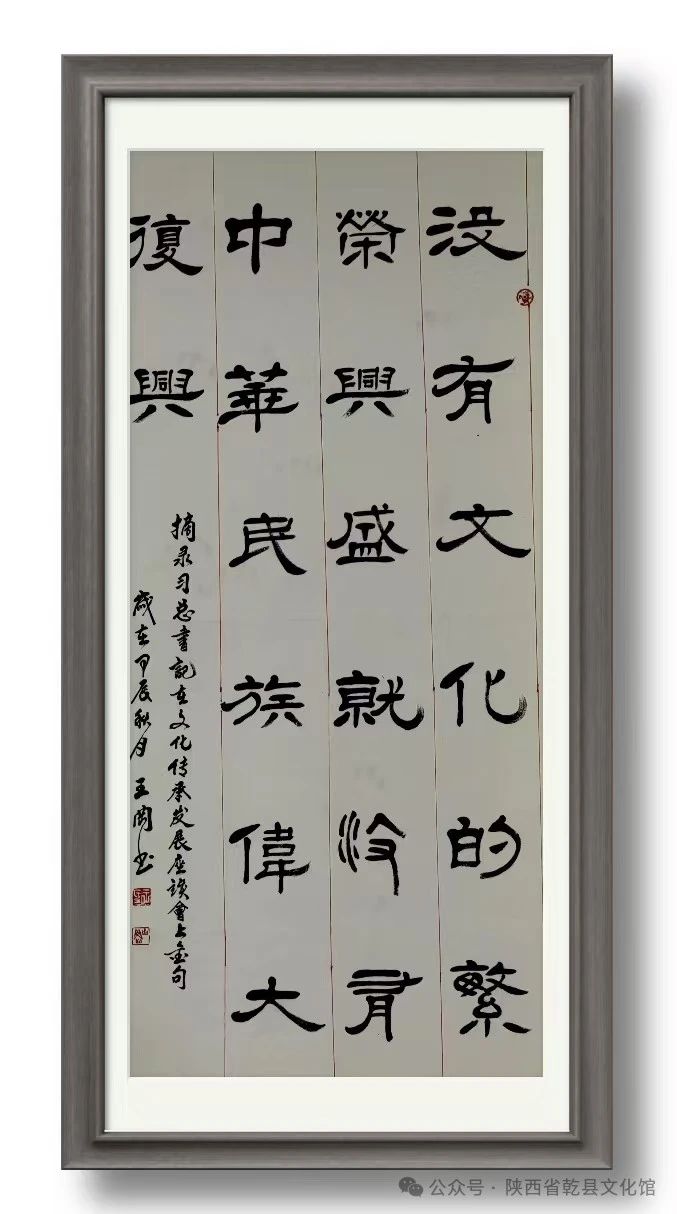 没有文化的繁
榮興盛就没有
中華民族偉大
復興
摘录习总書記在文化传承发展座谈會上金句
歲在甲辰秋月王闯书
公众号·陕西省乾县文化馆